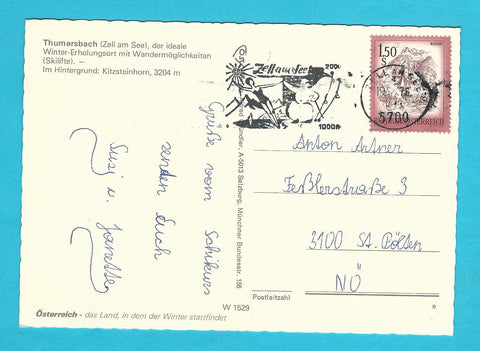 Thumersbach (Zell am See), der ideale
Winter-Erholungsort mit Wandermöglichkeiten
(Skilifte). —
Im Hintergrund: Kitzsteinhorn, 3204 m
Grüße vom Schikurs
senden Euch
Susi u. Janette
Österreich - das Land, in dem der Winter stattfindet
A-5013 Salzburg, Münchner Bundesstr. 158
W 1529
Zell am See
2000
1000m
1.50
S
REPUBLIK ÖSTERREICH
5700
Anton Artner
Feßlerstraße 3
3100 St. Pölten
NÖ
Postleitzahl